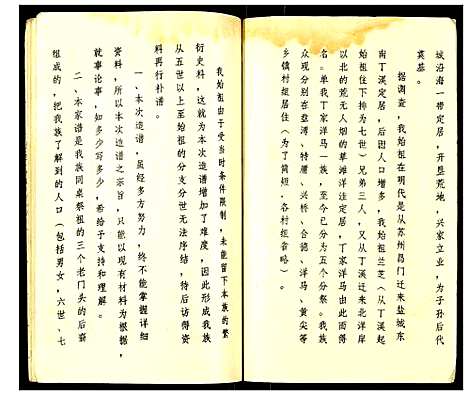 城沿海一带定居，开垦荒地，兴家立业，为子孙后代
奠基。
据调查，我始祖在明代是从苏州昌门迁来盐城东
南丁溪定居，后因人口增多，我始祖兰芝（从丁溪起
始祖住下排为七世）兄弟三人，又从丁溪迁来北洋岸
以北的荒无人烟的草滩洋洼定居，丁家洋马由此而得
名。单我丁家洋马一族，至今已分为五个分祭。我族
众现分别在盐湾、特庸、兴桥、合德、洋马、黄尖等
乡镇村组居住（为了简短，各村组省略）。
我始祖由于受当时条件限制，未能留下本族的繁
衍史料，这就为本次造谱增加了难度，因此形成我族
从五世以上至始祖的分支分世无法序结，待后访得资
料再行补谱。
一、本次造谱，虽经多方努力，终不能掌握详细
资料，所以本次造谱之宗旨，只能以现有材料为根据，
就事论事，知多少写多少，希给予支持和理解。
二、本家谱是我族同桌祭祖的三个老门头的后裔
组成的，把我族了解到的人口（包括男女，六世、七